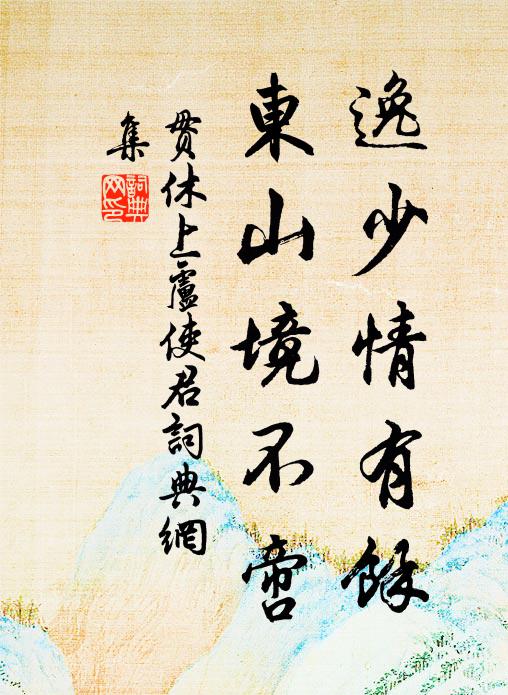 逸少情有餘
東山境不啻
貫休上盧使君詞典網
集
詞典網印